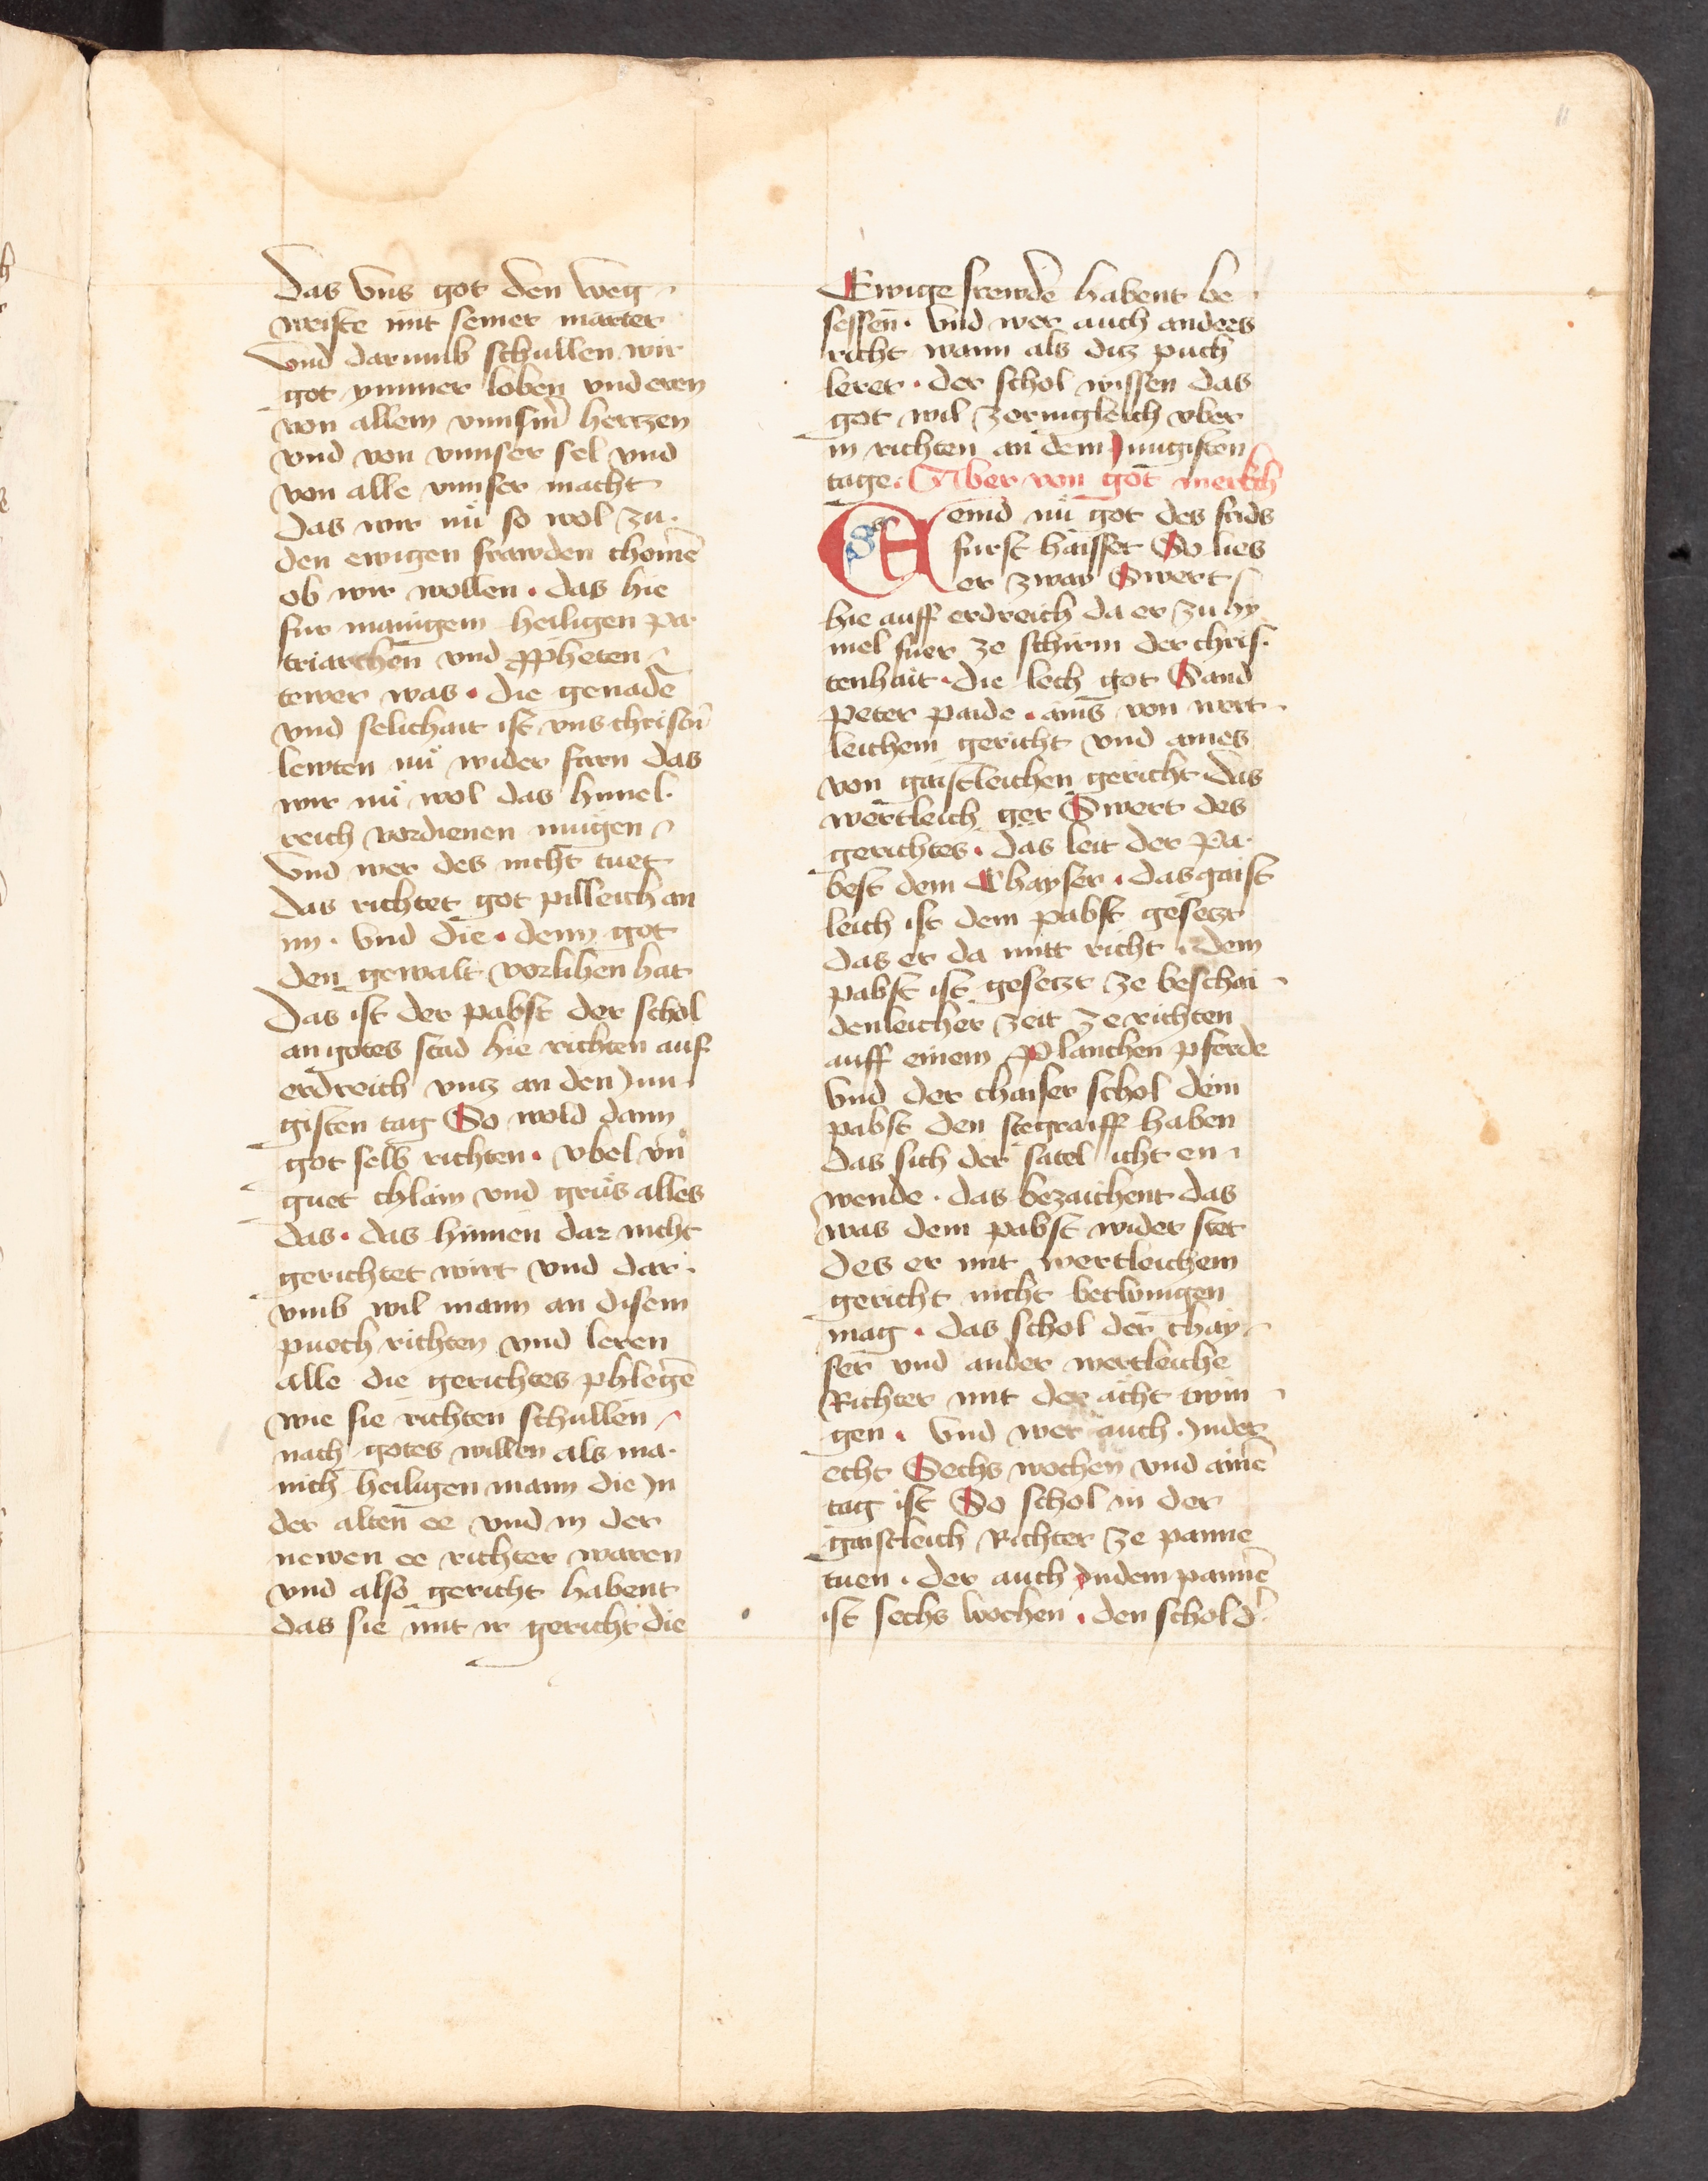 Das vns got den weg
weiste mit seiner marter
vnd darumb schullen wir
got ymmer loben vnd eren
von allem vnnsm̄ hertzen
vnd von vnnser sel vnd
von alle vnnser macht
Das wir nů so wol zu
den ewigen frawden chomē
ob wir wollen . das hie
fur manigem heiligen pa
triarchen vnd ꝓpheten
tewer was . die genade
vnd selichait ist vns christn̄
lewten nů wider farn das
wir nů wol das himel
reich vordienen mugen
vnd wer des nicht tuet
das richtet got pilleich an
im . vnd die . denn got
den gewalt vorlihen hat
Das ist der pabst der schol
an gotes stad hie richten auf
erdreich vntz an den Jun
gisten tag So wold dann
got selb richten . vbel vn̄
guet chlain vnd grůs alles
das . das hinnen dar nicht
gerichtet wirt vnd dar
vmb wil mann an disem
puech richten vnd leren
alle die gerichtes phlegē
wie sie richten schullen
nach gotes willen als ma
nich heiligen mann die Jn
der alten ee vnd in der
newen ee richter waren
vnd also gericht habent
das sie mit ir gericht die
Ewige frewde habent be
sessen . vnd wer auch anders
richt wann als ditz puch
leret . der schol wissen das
got wil zornigkleich vber
in richten an dem Jungisten
tage . Aber von got merkch
Seind nů got des frids
furst haisset So lies
er zway Swert
hie auff erdreich da er zu hy
mel fuer ze schirm der chris
tenhait . die lech got Sand
Peter paide . ains von wert
leichem gericht vnd aines
von gaistleichen gericht das
wertleich ger Swert des
gerichtes . das leit der Pa
best dem Chayser . das gaist
leich ist dem pabst gesetzt
das er da mitt richt . dem
pabst ist gesetzt ze beschai
denleicher zeit ze richten
auff einem Planchen pferde
vnd der chaiser schol dem
pabst den stegraiff haben
das sich der satel icht en
wende . das bezaichent das
was dem pabst wider stet
des er mit wertleichem
gericht nicht betwingen
mag . das schol der chay
ser vnd ander wertleiche
Richter mit der ächt twin
gen . vnd wer auch . Jnder
echt Sechs wochen vnd ainē
tag ist So schol in der
gaistleich Richter ze panne
tuen . der auch Jndem pannē
ist sechs wochen . den schol d'